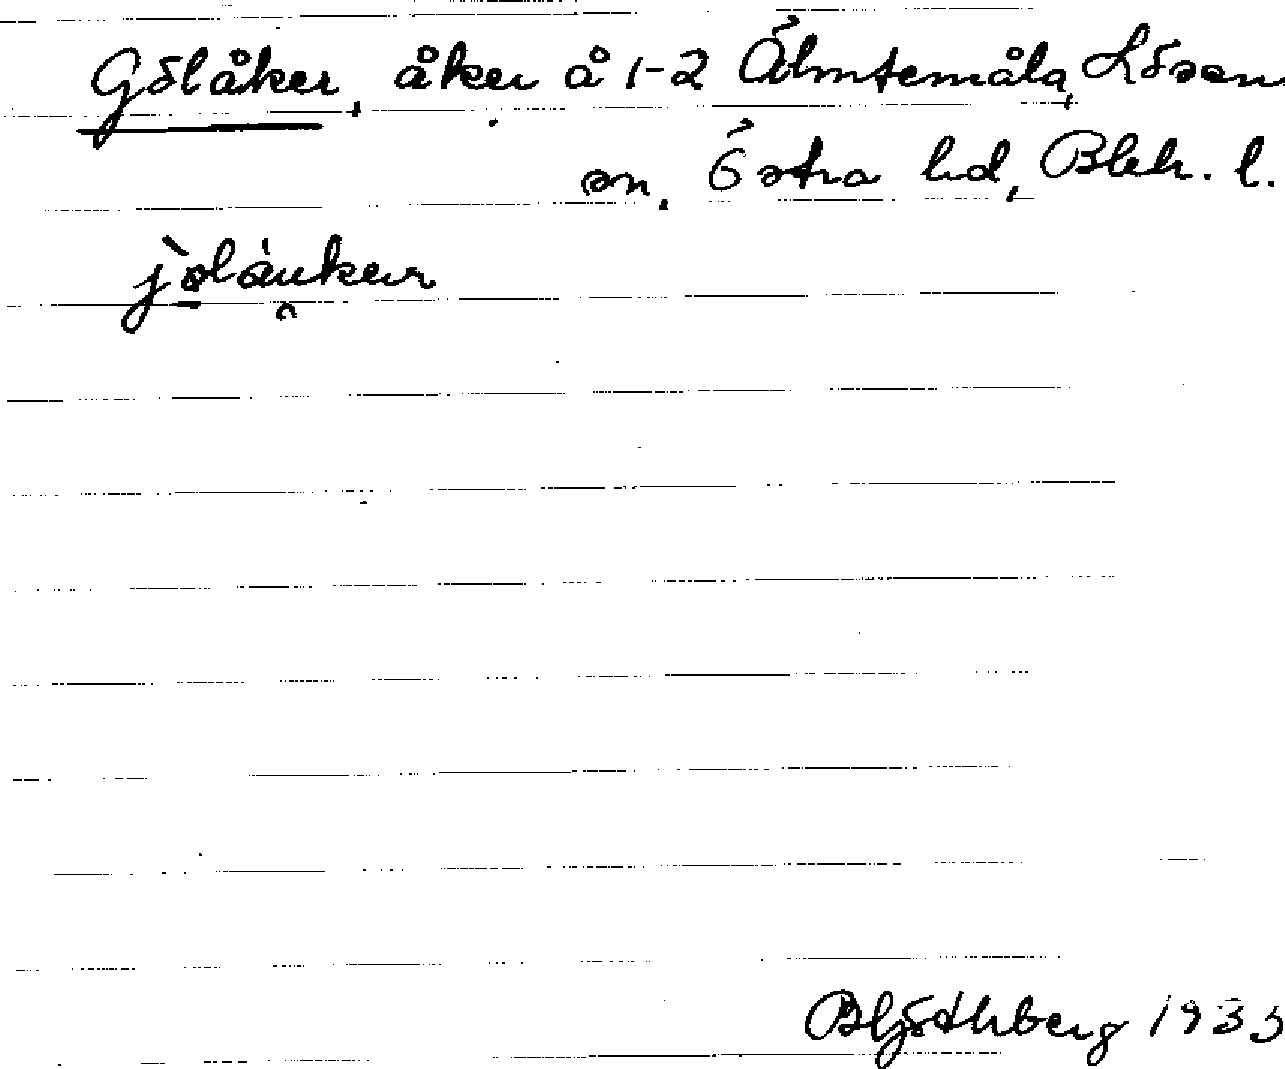 Gölåker, åker å 1-2 Älmtemåla, Lösen
sn, Östra hd, Blek. l.
jölåuker
Bljöthberg 1933